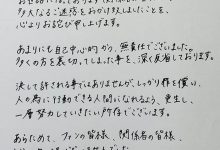 多大なるご迷惑をおかけ致しましたことを、
心よりお詫び申し上げます。
あまりにも自己中心的かつ、無責任でございました。
多くの方を裏切ってしまった事を、深く反省しております。
決して許される事ではありませんが、しっかり罪を償い、
人の為に行動できる人間になれるよう、更生し、
一層努力していきたい所存でございます。
あらためて、ファンの皆様、関係者の皆様、